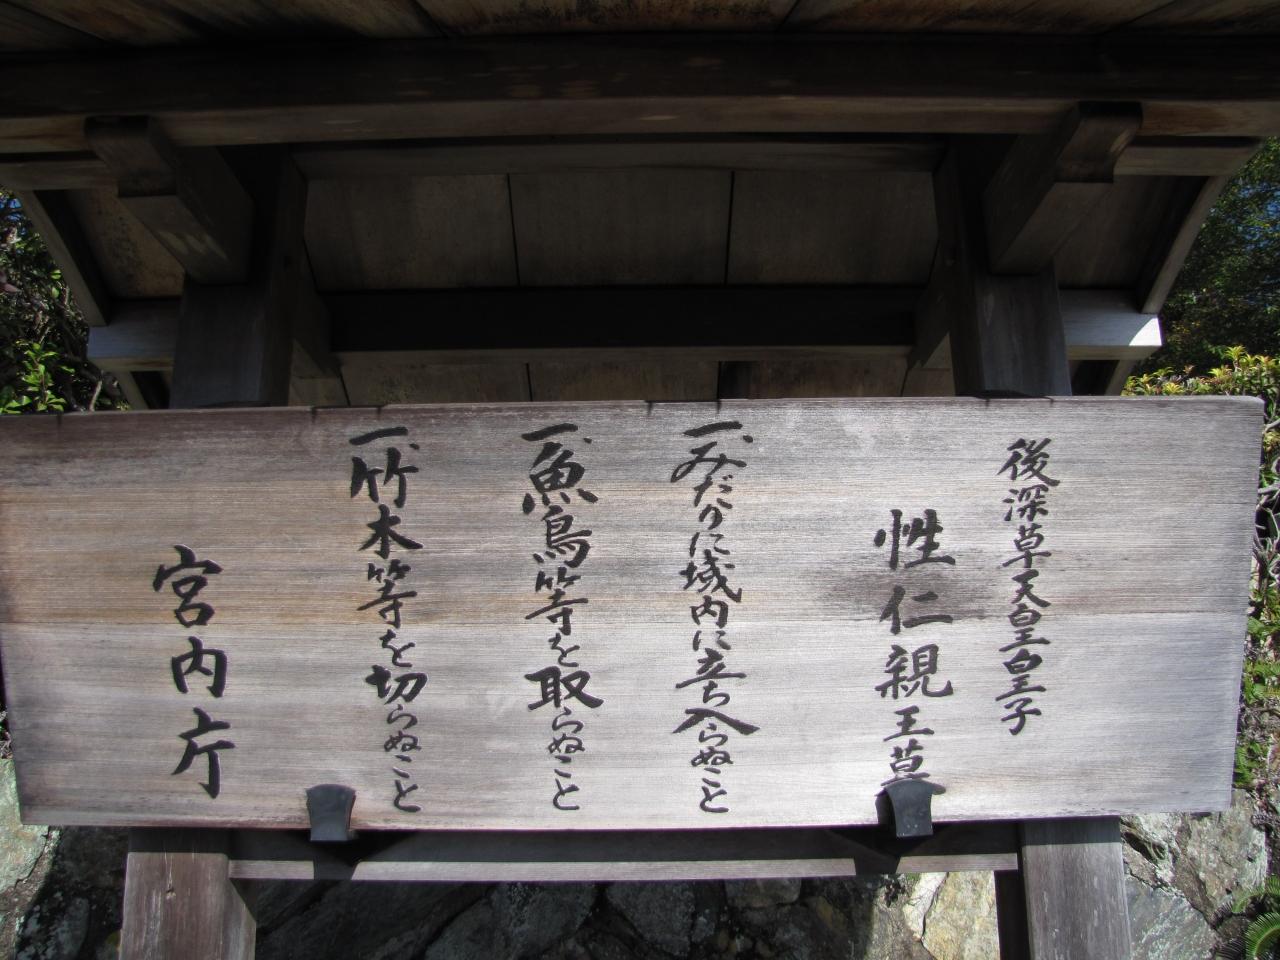 後深草天皇皇子
性仁親王墓
一、みだりに域内に立ち入らぬこと
一、魚鳥等を取らぬこと
一、竹木等を切らぬこと
宮内庁